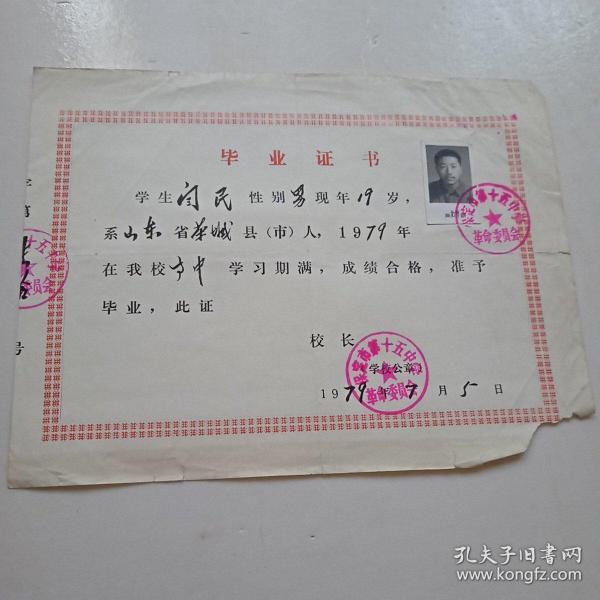 毕业证书
学生闫民性别男现年19岁，
系山东省莘城县（市）人，1979年
在我校高中学习期满，成绩合格，准予
毕业，此证
校长
（学校公章）
1979年7月5日
市第十五中学
革命委员会
市第十五中
革命委员会
十五
委员会
号
孔夫子旧书网
www.kongfz.com